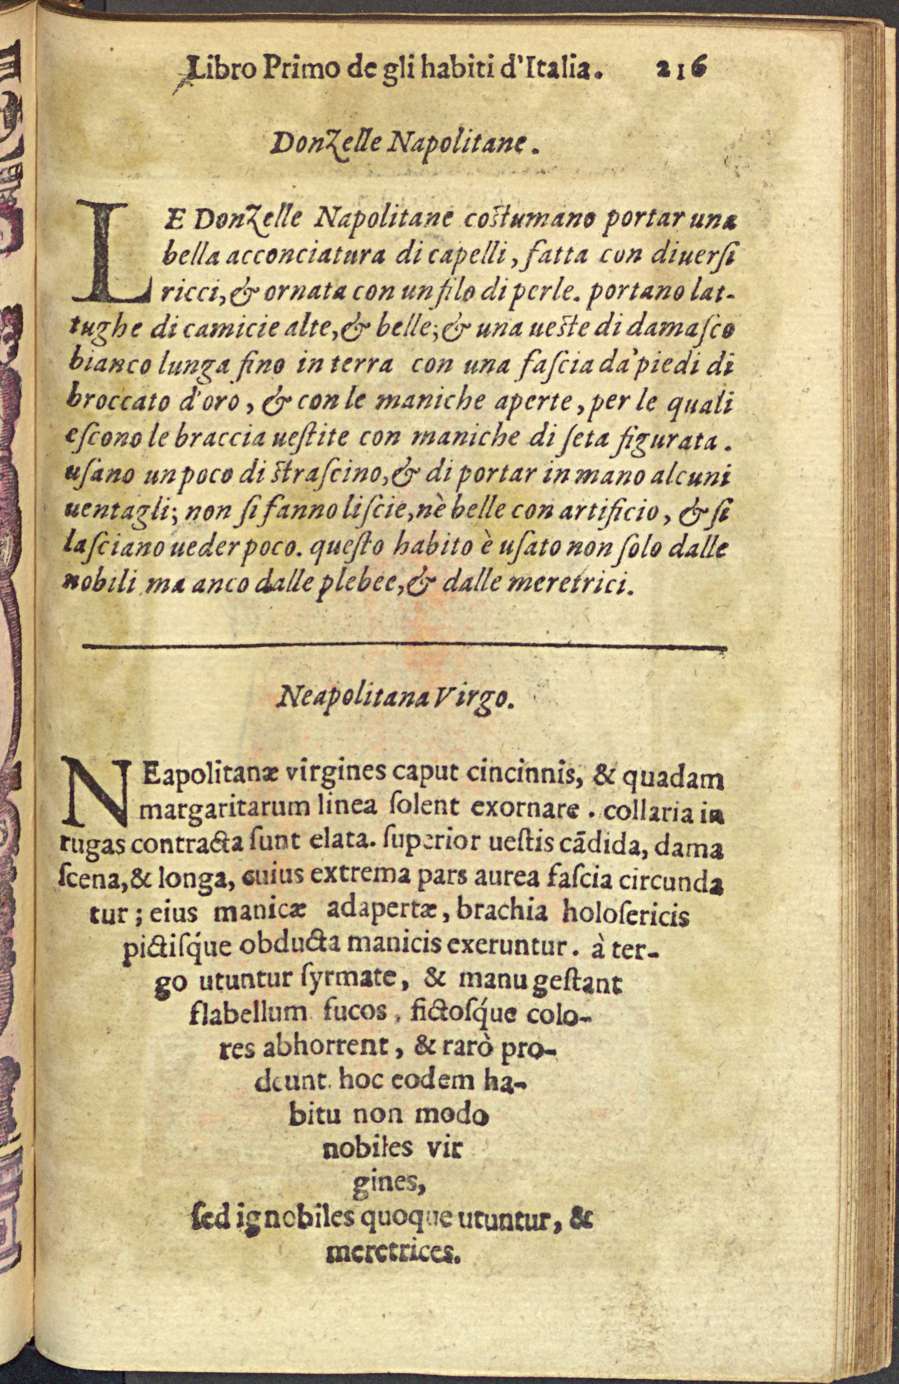 Libro Primo de gli habiti d'Italia. 216
Donzelle Napolitane.
LE Donzelle Napolitane costumano portar una
bella acconciatura di capelli, fatta con diuersi
ricci, & ornata con un filo di perle. portano lat-
tughe di camicie alte, & belle; & una ueste di damasco
bianco lunga fino in terra con una fascia da' piedi di
broccato d'oro, & con le maniche aperte, per le quali
escono le braccia uestite con maniche di seta figurata.
usano un poco di strascino, & di portar in mano alcuni
uentagli; non si fanno liscie, nè belle con artificio, & si
lasciano ueder poco. questo habito è usato non solo dalle
nobili ma anco dalle plebee, & dalle meretrici.
Neapolitana Virgo.
NEapolitanæ virgines caput cincinnis, & quadam
margaritarum linea solent exornare. collaria in
rugas contracta sunt elata. superior uestis cãdida, dama
scena, & longa, cuius extrema pars aurea fascia circunda
tur; eius manicæ adapertæ, brachia holosericis
pictisq́ue obducta manicis exeruntur. à ter-
go utuntur syrmate, & manu gestant
flabellum fucos, fictosq́ue colo-
res abhorrent, & rarò pro-
deunt. hoc eodem ha-
bitu non modo
nobiles vir
gines,
sed ignobiles quoque utuntur, &
meretrices.